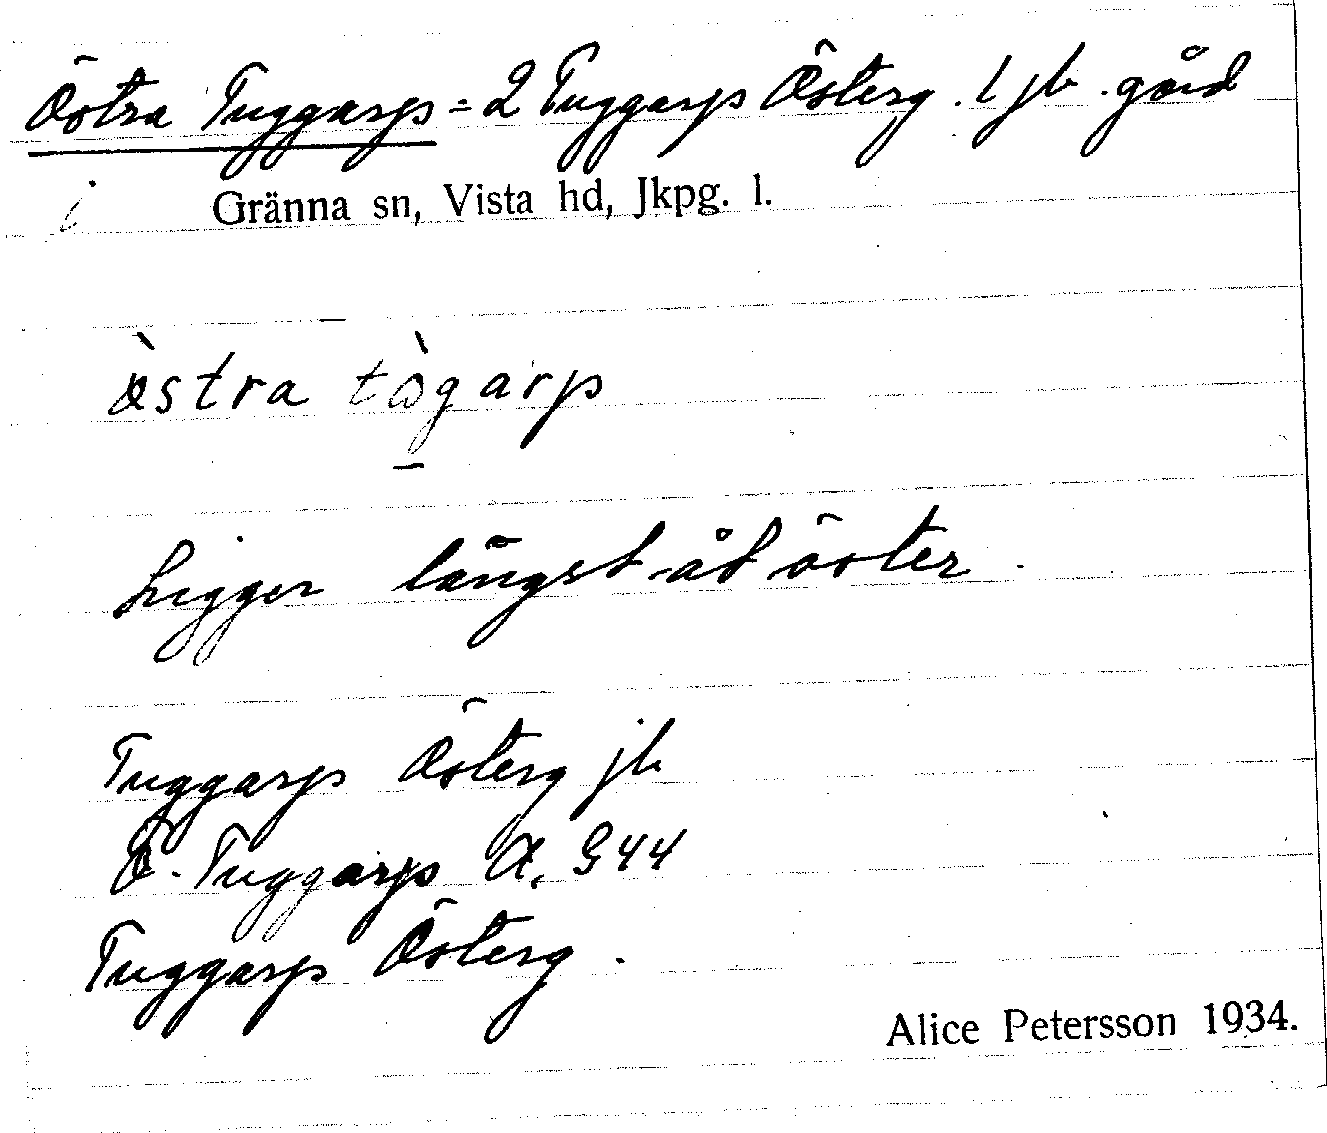 Östra Tuggarp = 2 Tuggarp Österg. 1 jb. gård
i Gränna sn, Vista hd, Jkpg. l.
östra tògarp
Ligger längst åt öster.
Tuggarp Österg jb
Ö. Tuggarp A. G44
Tuggarp Österg.
Alice Petersson 1934.